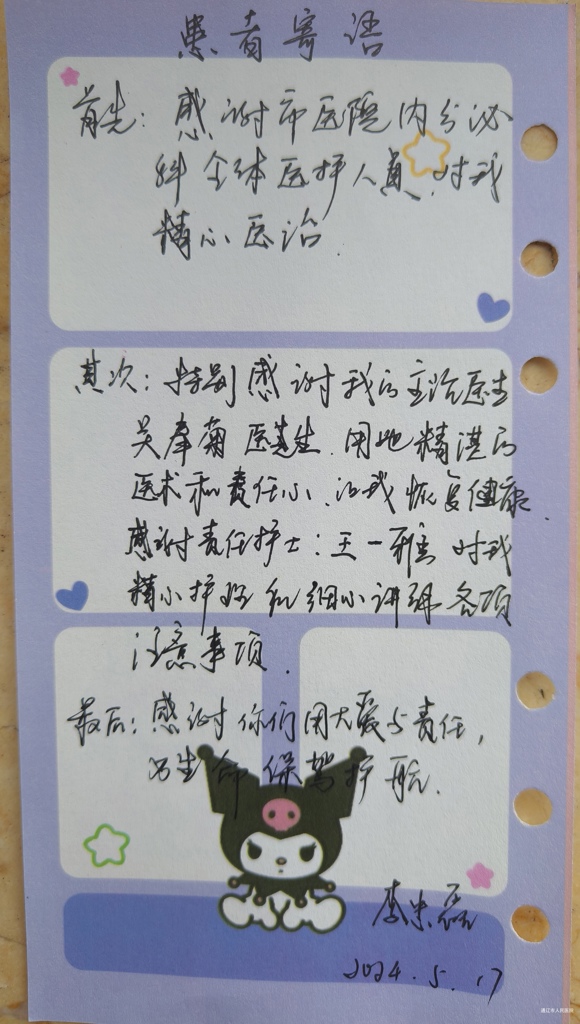 患者寄语
首先：感谢市医院内分泌
科全体医护人员，对我
精心医治．
其次：特别感谢我的主治医生
吴奉菊医生．用她精湛的
医术和责任心，让我恢复健康．
感谢责任护士：王一雅 对我
精心护理和细心讲解各项
注意事项．
最后：感谢你们用大爱与责任，
为生命保驾护航．
李忠磊
2024.5.17